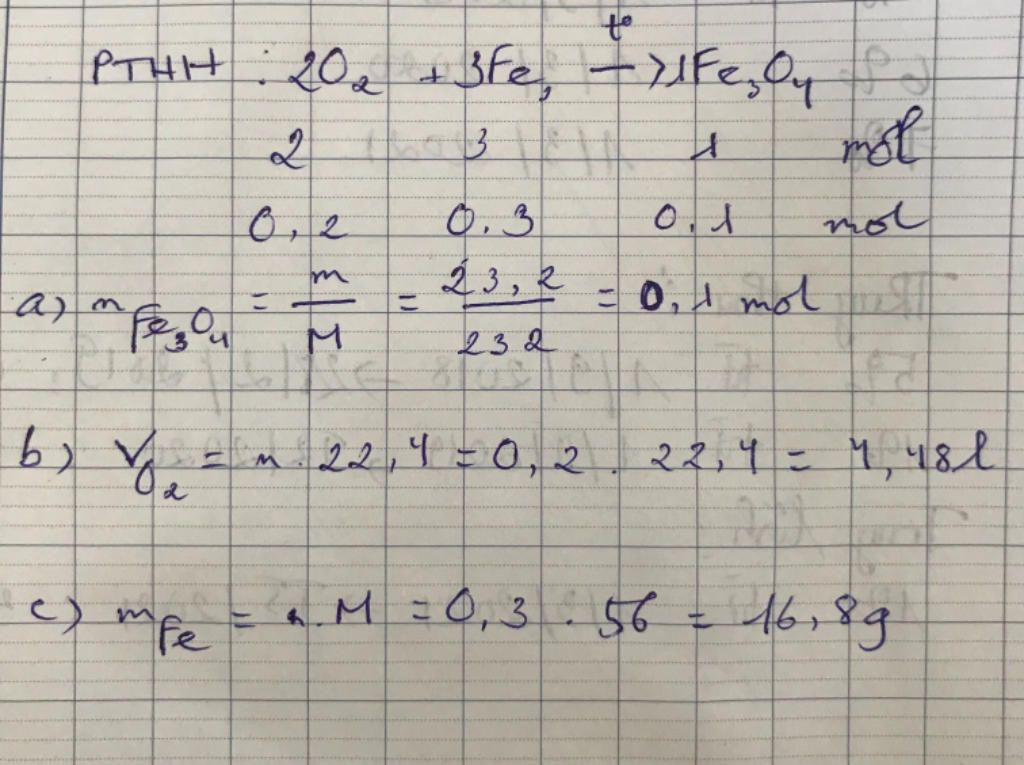 t°
PTHH : 2O₂ + 3Fe, —> 1Fe₃O₄
2 3 1 mol
0,2 0.3 0.1 mol
a) n Fe₃O₄ = m/M = 23,2/232 = 0,1 mol
b) V O₂ = n. 22,4 = 0,2 . 22,4 = 4,48l
c) m Fe = n.M = 0,3 . 56 = 16,8g